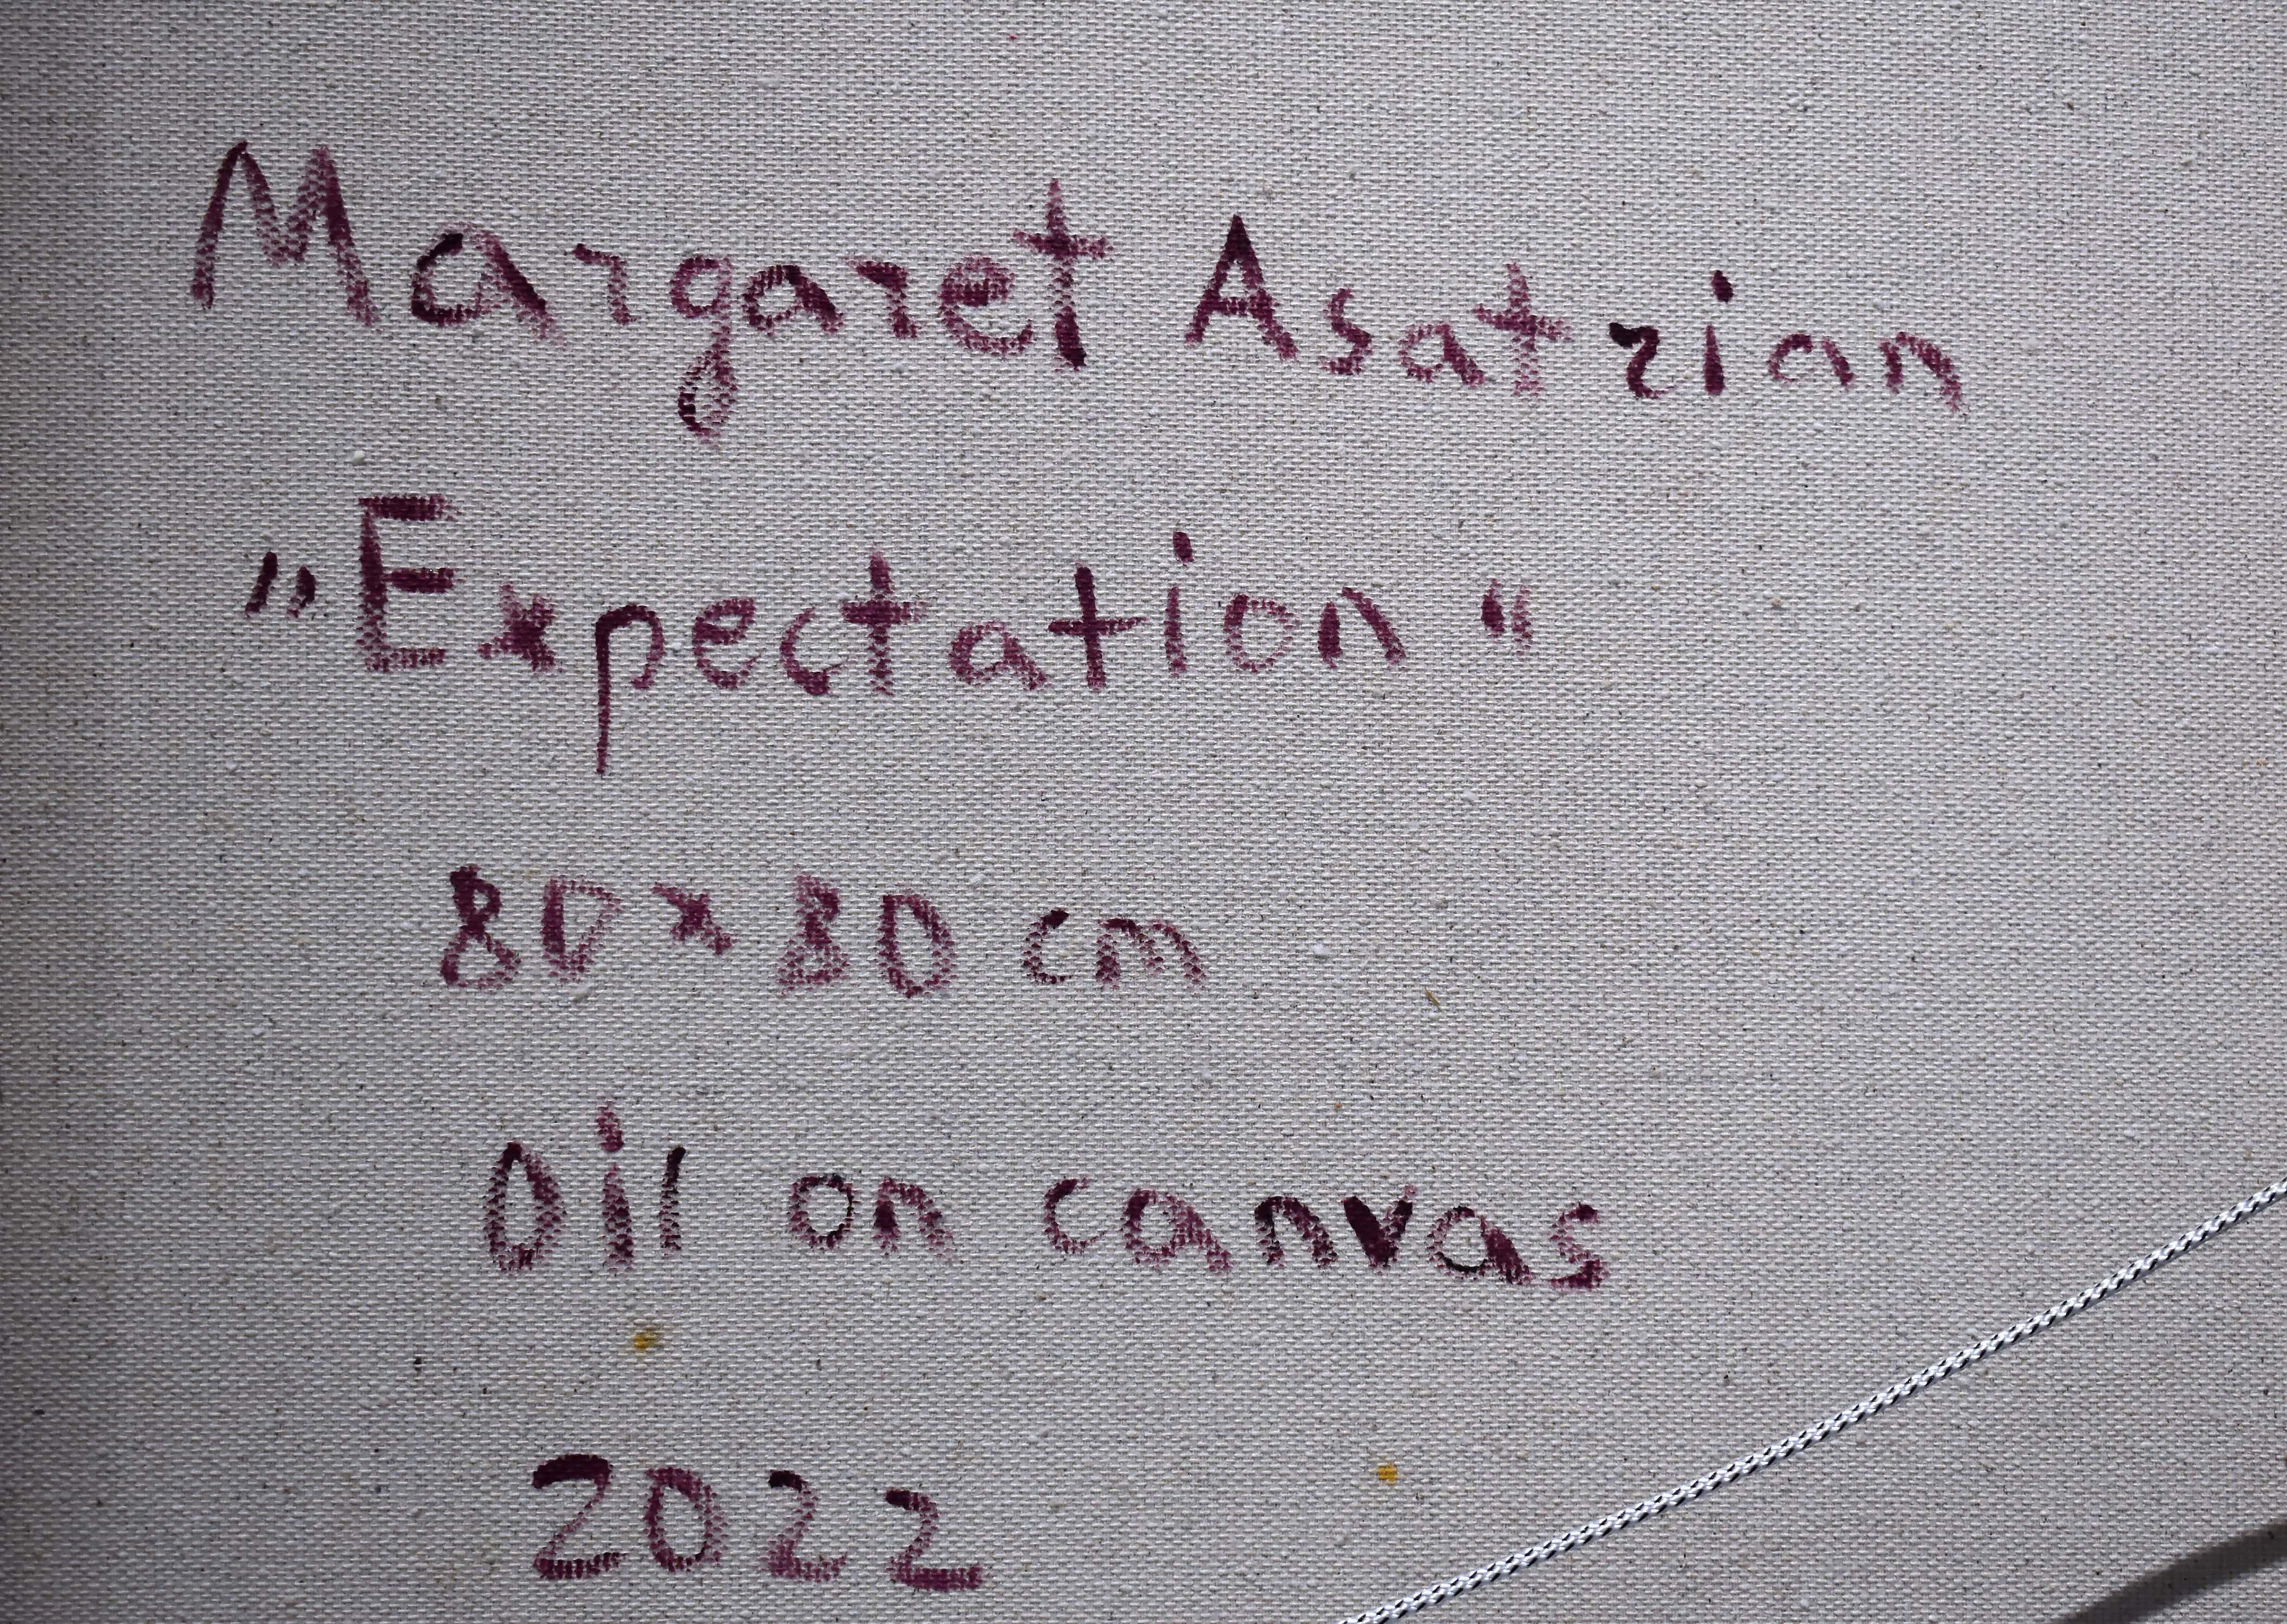 Margaret Asatzian
"Expectation"
80 x 80 cm
Oil on canvas
2022